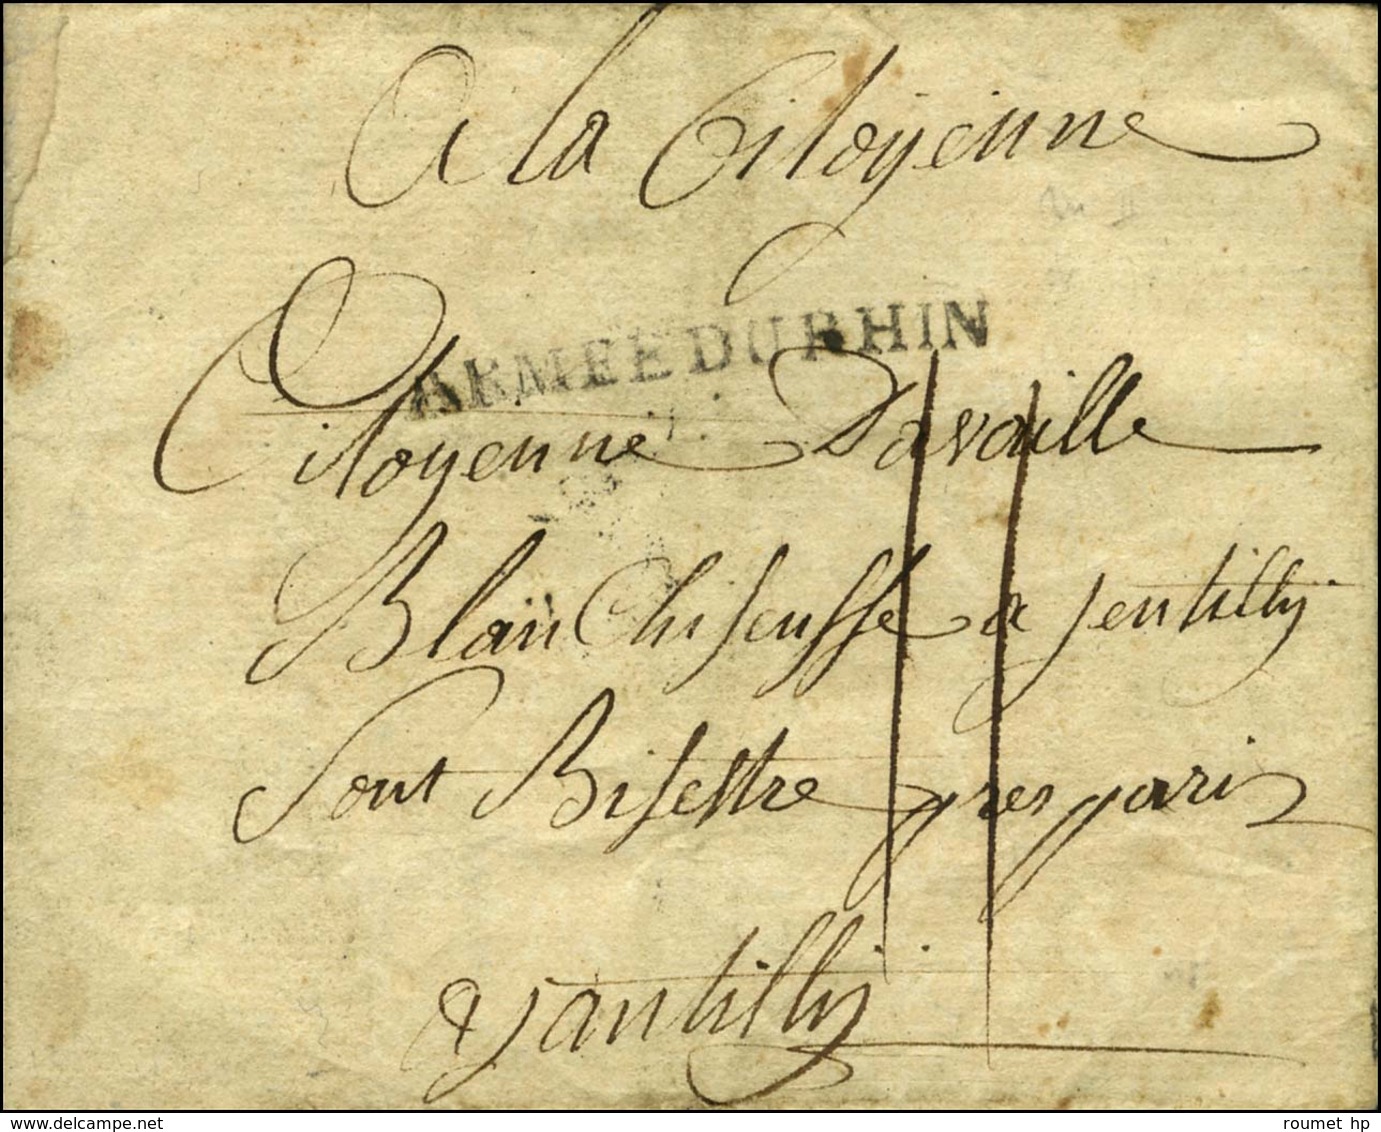 A la Citoyenne
ARMEE DU RHIN
Citoyenne Davaille
Blanchiseusse a jentilly
Sout Bisestre pres paris
a jantilly
11
delcampe.net
roumet hp